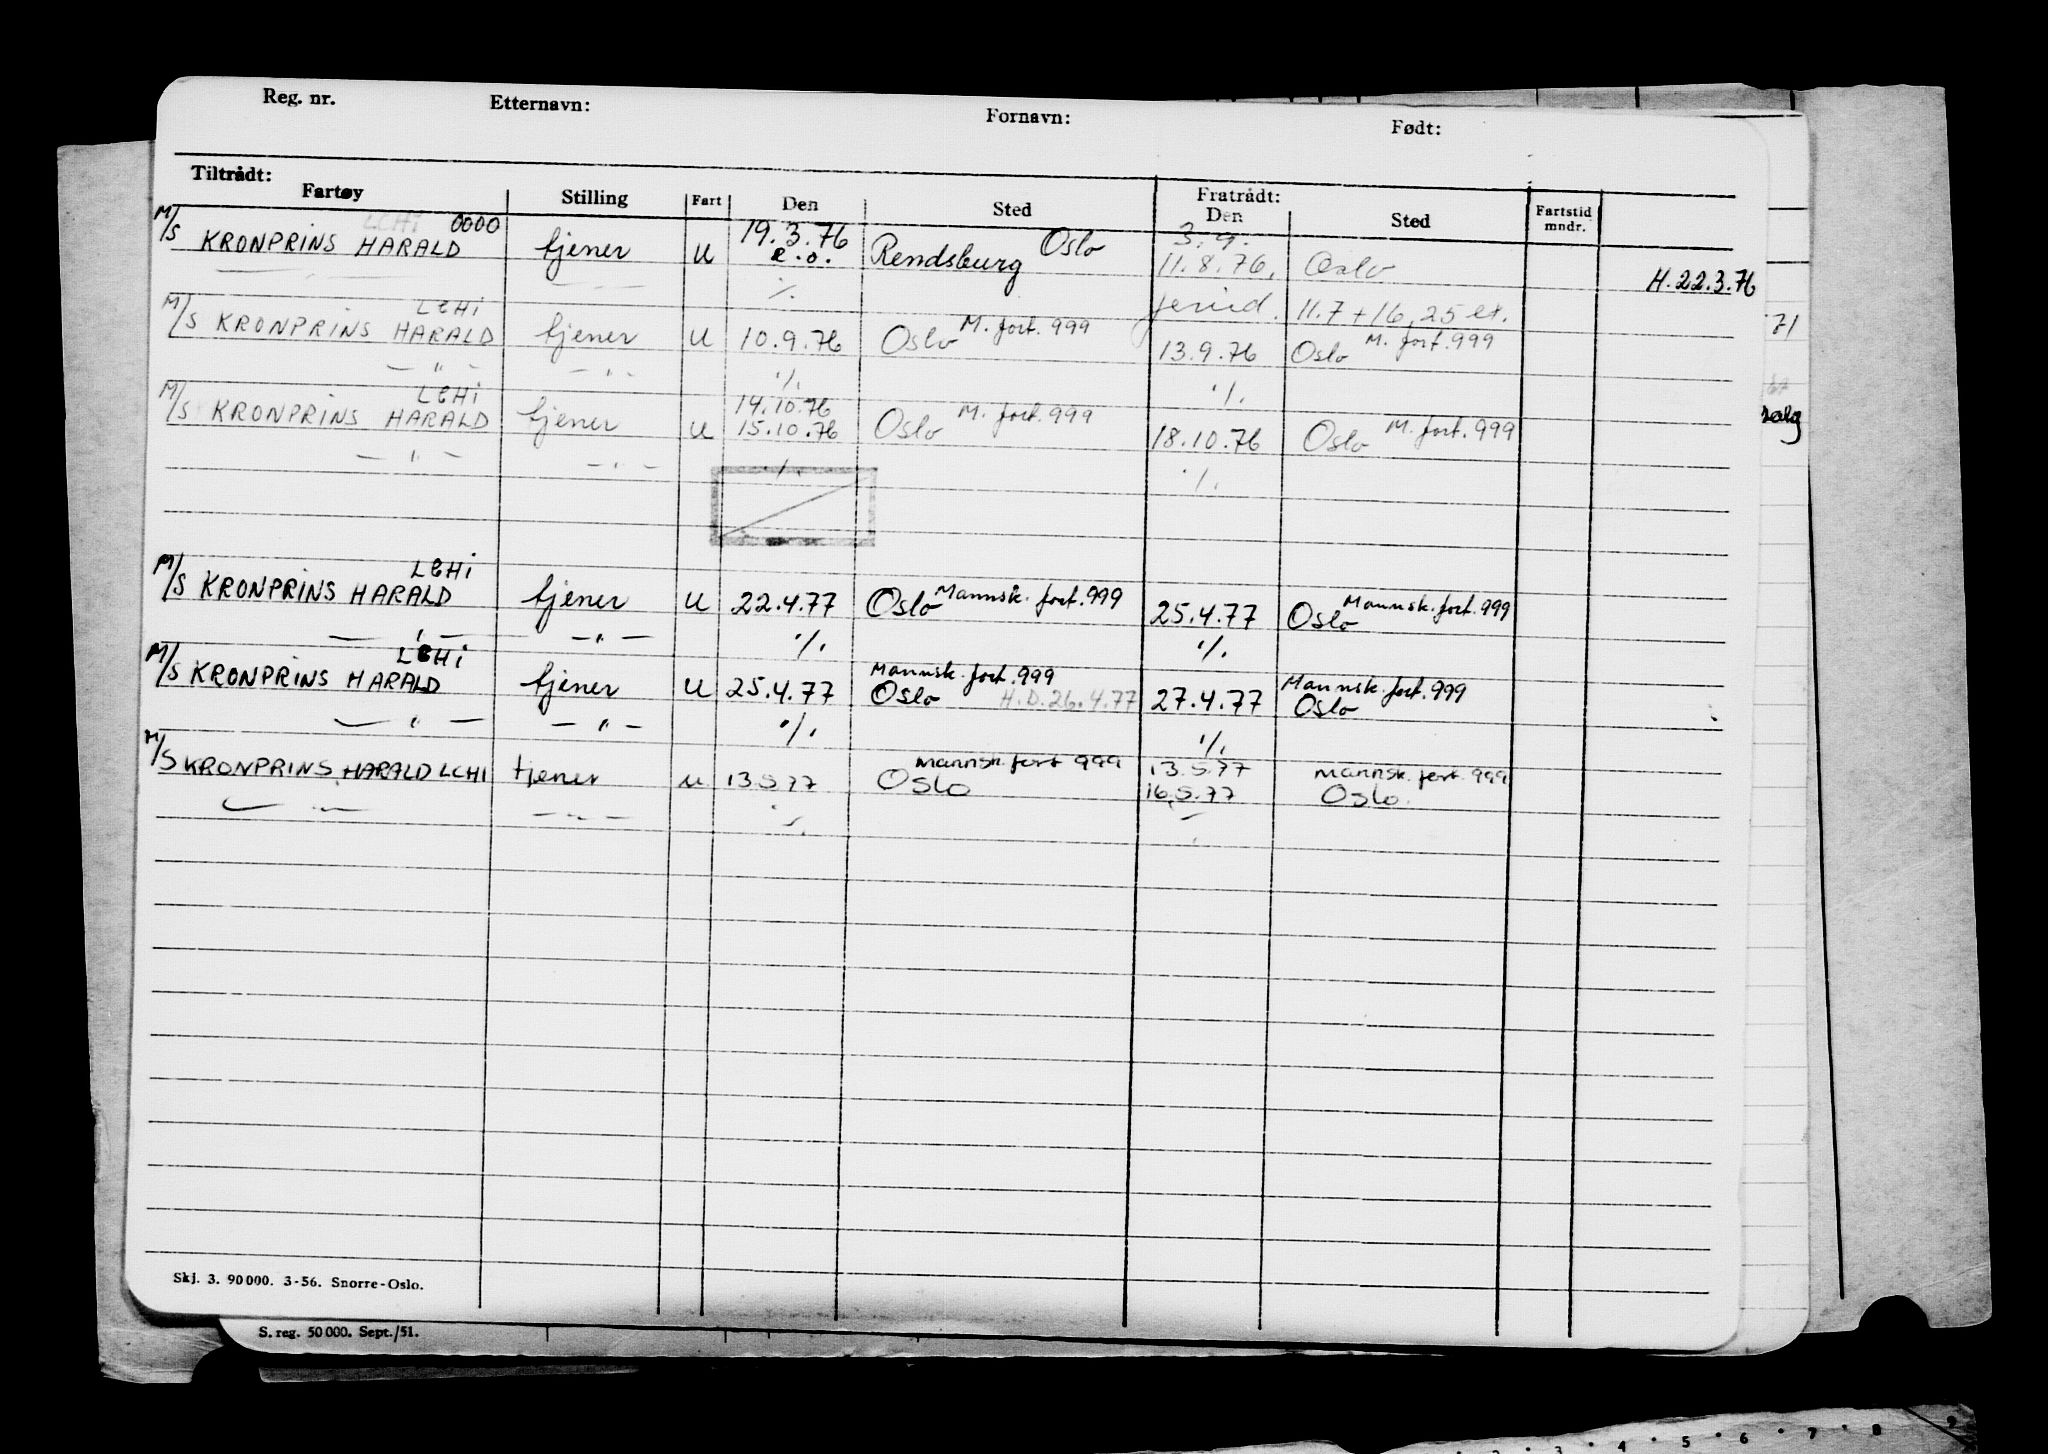 Reg. nr. Etternavn: Fornavn: Født:
Tiltrådt: Fratrådt:
Fartøy Stilling Fart Den Sted Den Sted Fartstid mndr.
LCHI 0000 19.3.76 Oslo 3.9.
M/S KRONPRINS HARALD tjener U e.o. Rendsburg 11.8.76, Oslo H.22.3.76
LCHI ./. 11.7 + 16, 25 et.
M/S KRONPRINS HARALD tjener U 10.9.76 Oslo M. fort. 999 13.9.76 Oslo M. fort. 999
— " — — " — ./. ./.
LCHI 14.10.76
M/S KRONPRINS HARALD tjener U 15.10.76 Oslo M. fort. 999 18.10.76 Oslo M. fort. 999
— " — — " — ./. ./.
LCHI
M/S KRONPRINS HARALD tjener U 22.4.77 Oslo Mannsk. fort. 999 25.4.77 Oslo Mannsk. fort. 999
— " — — " — ./. ./.
LCHI Mannsk. fort. 999 Mannsk. fort. 999
M/S KRONPRINS HARALD tjener U 25.4.77 Oslo H.D.26.4.77 27.4.77 Oslo
— " — — " — ./. ./.
mannsk. fort 999 13.5.77 mannsk. fort. 999
M/S KRONPRINS HARALD LCHI tjener u 13.5.77 Oslo 16.5.77 Oslo.
— " — — " — ./. ./.
Skj. 3. 90 000. 3-56. Snorre-Oslo.
S. reg. 50 000. Sept./51.
71
3 4 5 6 7 8 9